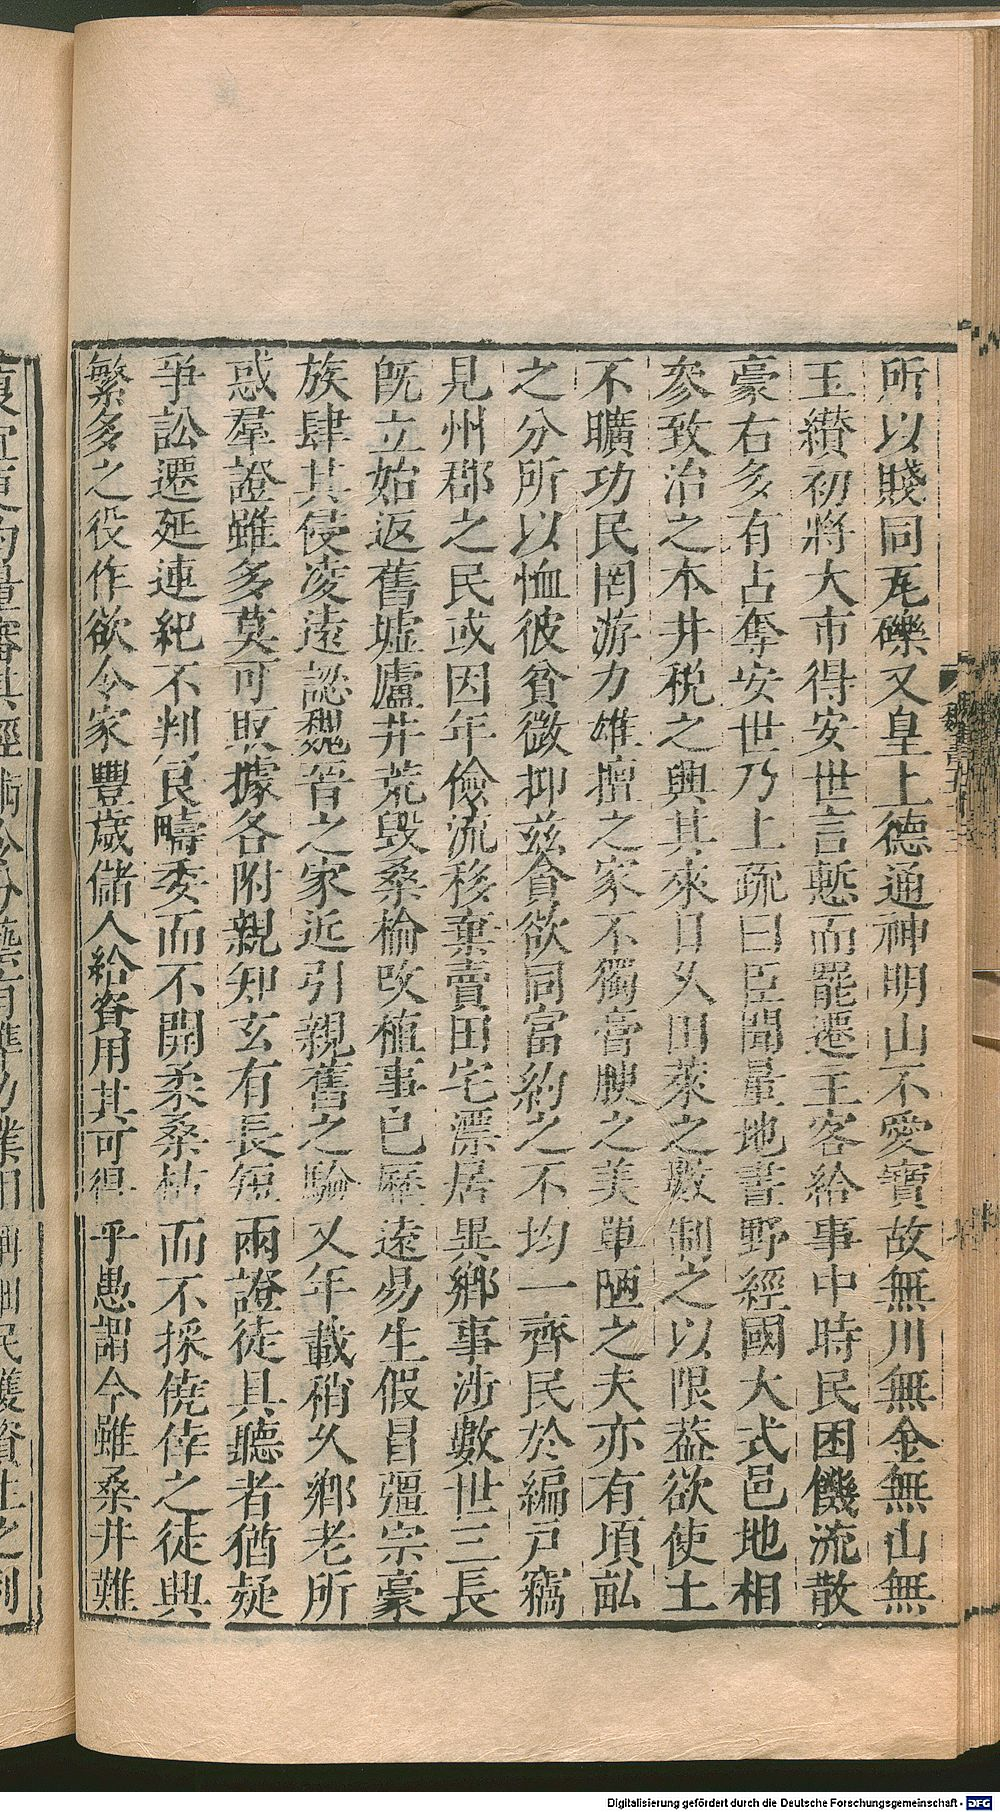 所以賤同瓦礫又皇上德通神明山不愛寶故無川無金無山無
玉纉初將大市得安世言慙而罷遷主客給事中時民困饑流散
豪右多有占奪安世乃上疏曰臣聞量地畫野經國大式邑地相
叅致治之本井稅之興其來日久田萊之數制之以限葢欲使土
不曠功民罔游力雄擅之家不獨膏腴之美單陋之夫亦有頃畝
之分所以恤彼貧微抑茲貪欲同富約之不均一齊民於編戸竊
見州郡之民或因年儉流移棄賣田宅漂居異鄉事涉數世三長
旣立始返舊墟廬井荒毀桑榆改植事已歷遠易生假冒彊宗豪
族肆其侵凌遠認魏晉之家近引親舊之驗又年載稍久鄉老所
惑羣證雖多莫可取據各附親知玄有長短兩證徒具聽者猶疑
爭訟遷延連紀不判良疇委而不開柔桑枯而不採僥倖之徒興
繁多之役作欲令家豐歲儲人給資用其可得乎愚謂今雖桑井難
魏書五
Digitalisierung gefördert durch die Deutsche Forschungsgemeinschaft - DFG